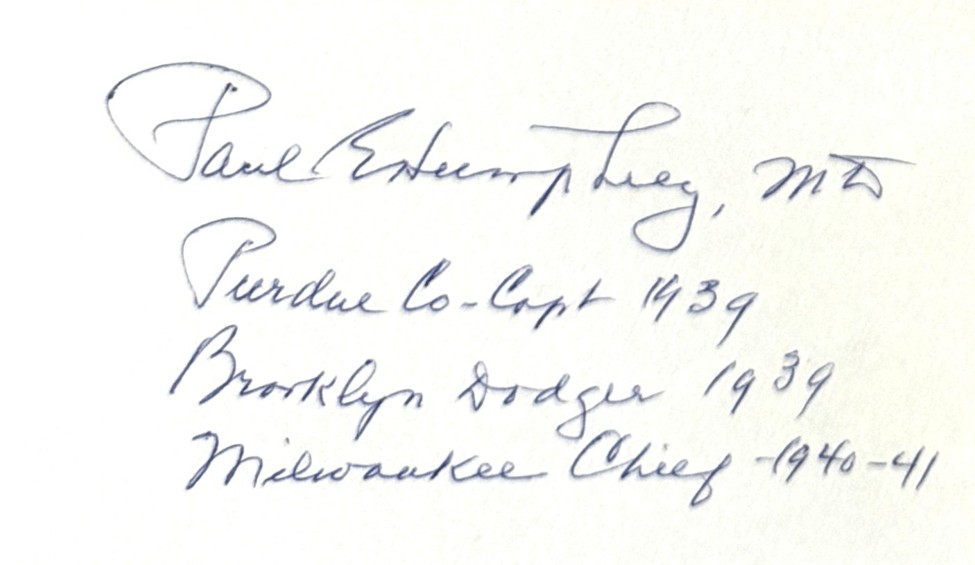 Paul E Humphrey, MD
Purdue Co-Capt 1939
Brooklyn Dodger 1939
Milwaukee Chief -1940-41